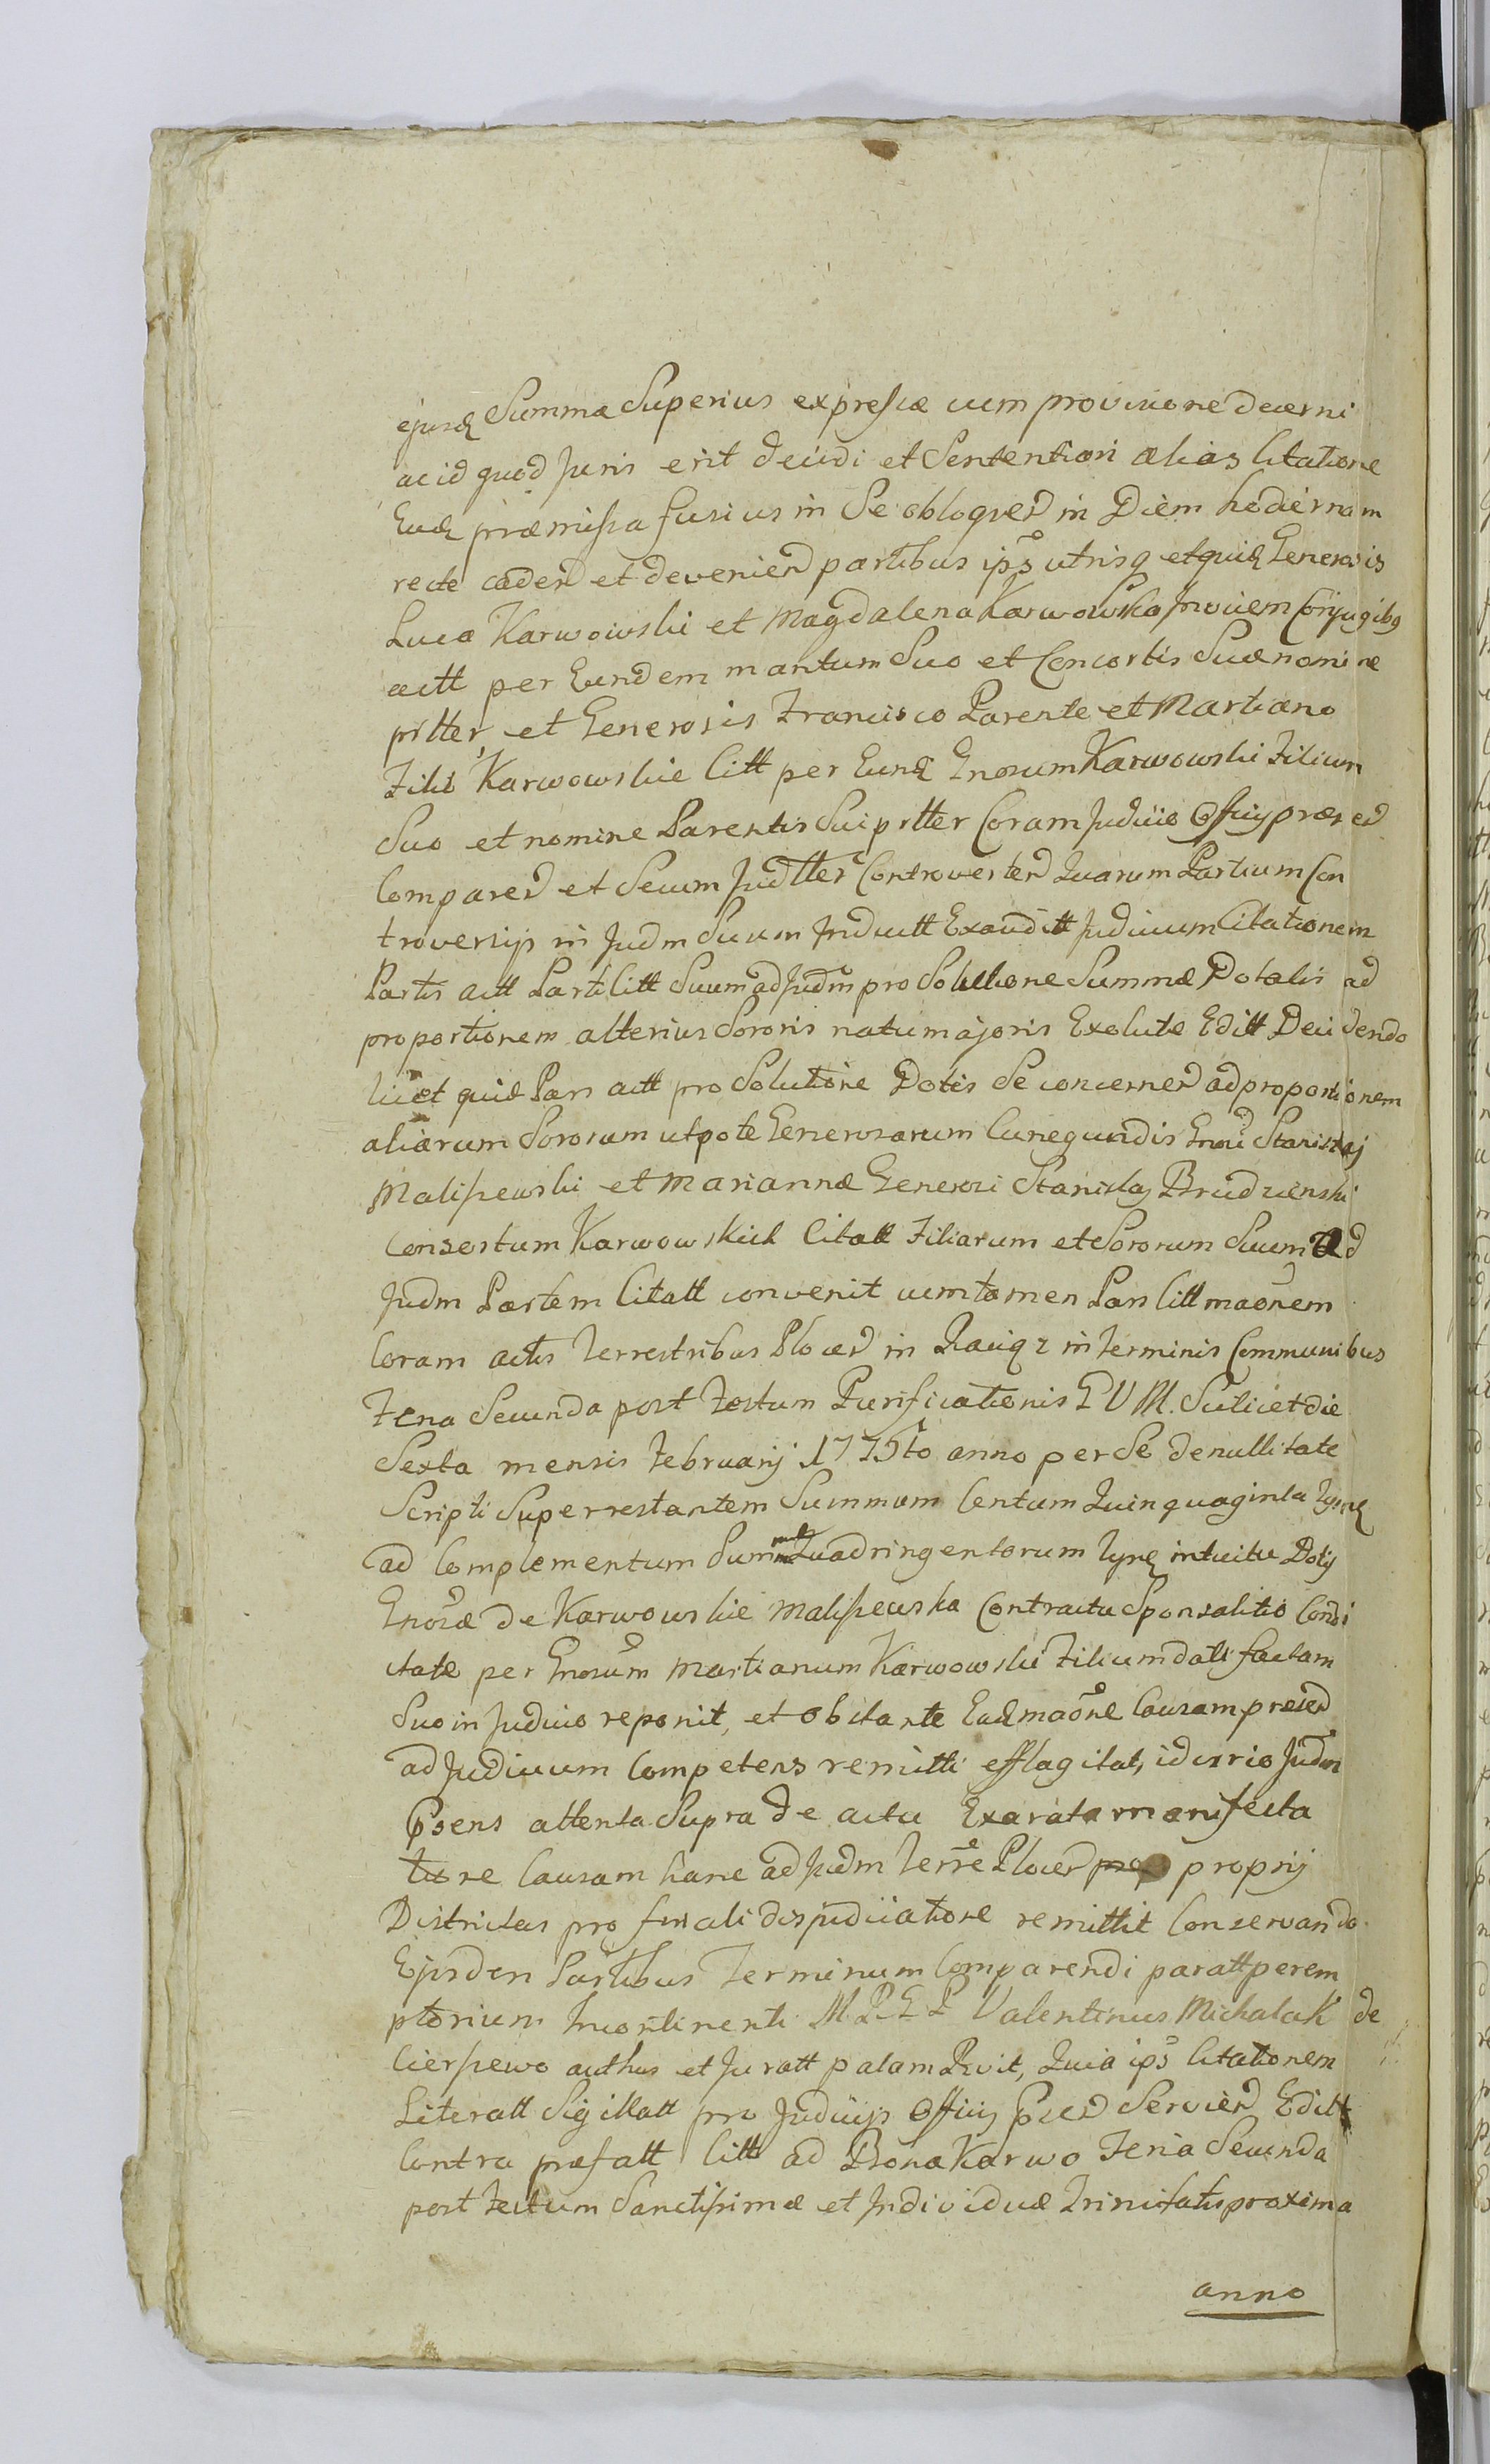 ejusd Summæ Superius expressæ cum provisione decerni
ac id quod Juris erit decidi et Sententiari alias Citatione
Ead præmissa fusius in Se obloqued in Diem hodiernam
recte caded et devenied partibus ips utrisq etquid Generosis
Luca Karwowski et Magdalena Karwowska Invicem Conjugibg
actt per Eundem maritum Suo et Consortis Suæ nomine
prtter et Generosis Francisco Parente et Martiano
Filio Karwowskie Citt per Eund Gnosum Karwowski Filium
Suo et nomine Parentis Sui prtter Coram Judicio Officij præsed
Compared et Secum Judtter Controverted Quarum Partium Con
troversijs in Judm Suum Inductt Exauditt Judicium Citationem
Partis actt Parti Citt Suum ad Judm pro Solutione Summæ Dotalis ad
proportionem alterius Sororis natu majoris Exolutæ Editt Decidendo
licet quid Pars actt pro Solutione Dotis Se concerned ad proportionem
aliarum Sororum utpote Generosarum Cunegundis Gnosi Stanislaj
Maliszewski et Mariannæ Generosi Stanislaj Brudzienski
Consortum Karwowskich Citatt Filiarum et Sororum Suum Ad
Judm Partem Citatt convenit cum tamen Pars Citt maonem
Coram actis Terrestribus Ploced in Raciąz in Terminis Communibus
Feria Secunda post Festum Purificationis B V M. Scilicet die
Sexta mensis Februarij 1775to anno per Se de nullitate
Scripti Superrestantem Summam Centum Quinquaginta Tynf
ad Complementum Summæ Quadringentorum Tynf intuitu Dotis
Gnosæ de Karwowskie Maliszewska Contractu Sponsalitio Condi
ctatæ per Gnosum Martianum Karwowski Filium dati factam
Suo in Judicio reponit, et obstante Ead maone Causam præsed
ad Judicium Competens remitti efflagitat, idcirco Judm
Psens attenta Supra de actu Exarata manifesta
tione Causam hanc ad Judm Terre Ploced proprij
Districtus pro finali disjudicatione remittit Conservando
Ejisdem Partibus Terminum Comparendi paratt perem
ptorium Incontinenti M. P. E. P. Valentinus Michalak de
Cierszewo authus et Juratt palam Rvit, Quia ips Citationem
Literatt Sigillatt pro Judicijs Officij Psed Servied Editt
Contra præfatt Citt ad Bona Karwo Feria Secunda
post Festum Sanctissimæ et Individuæ Trinitatis proxima
anno